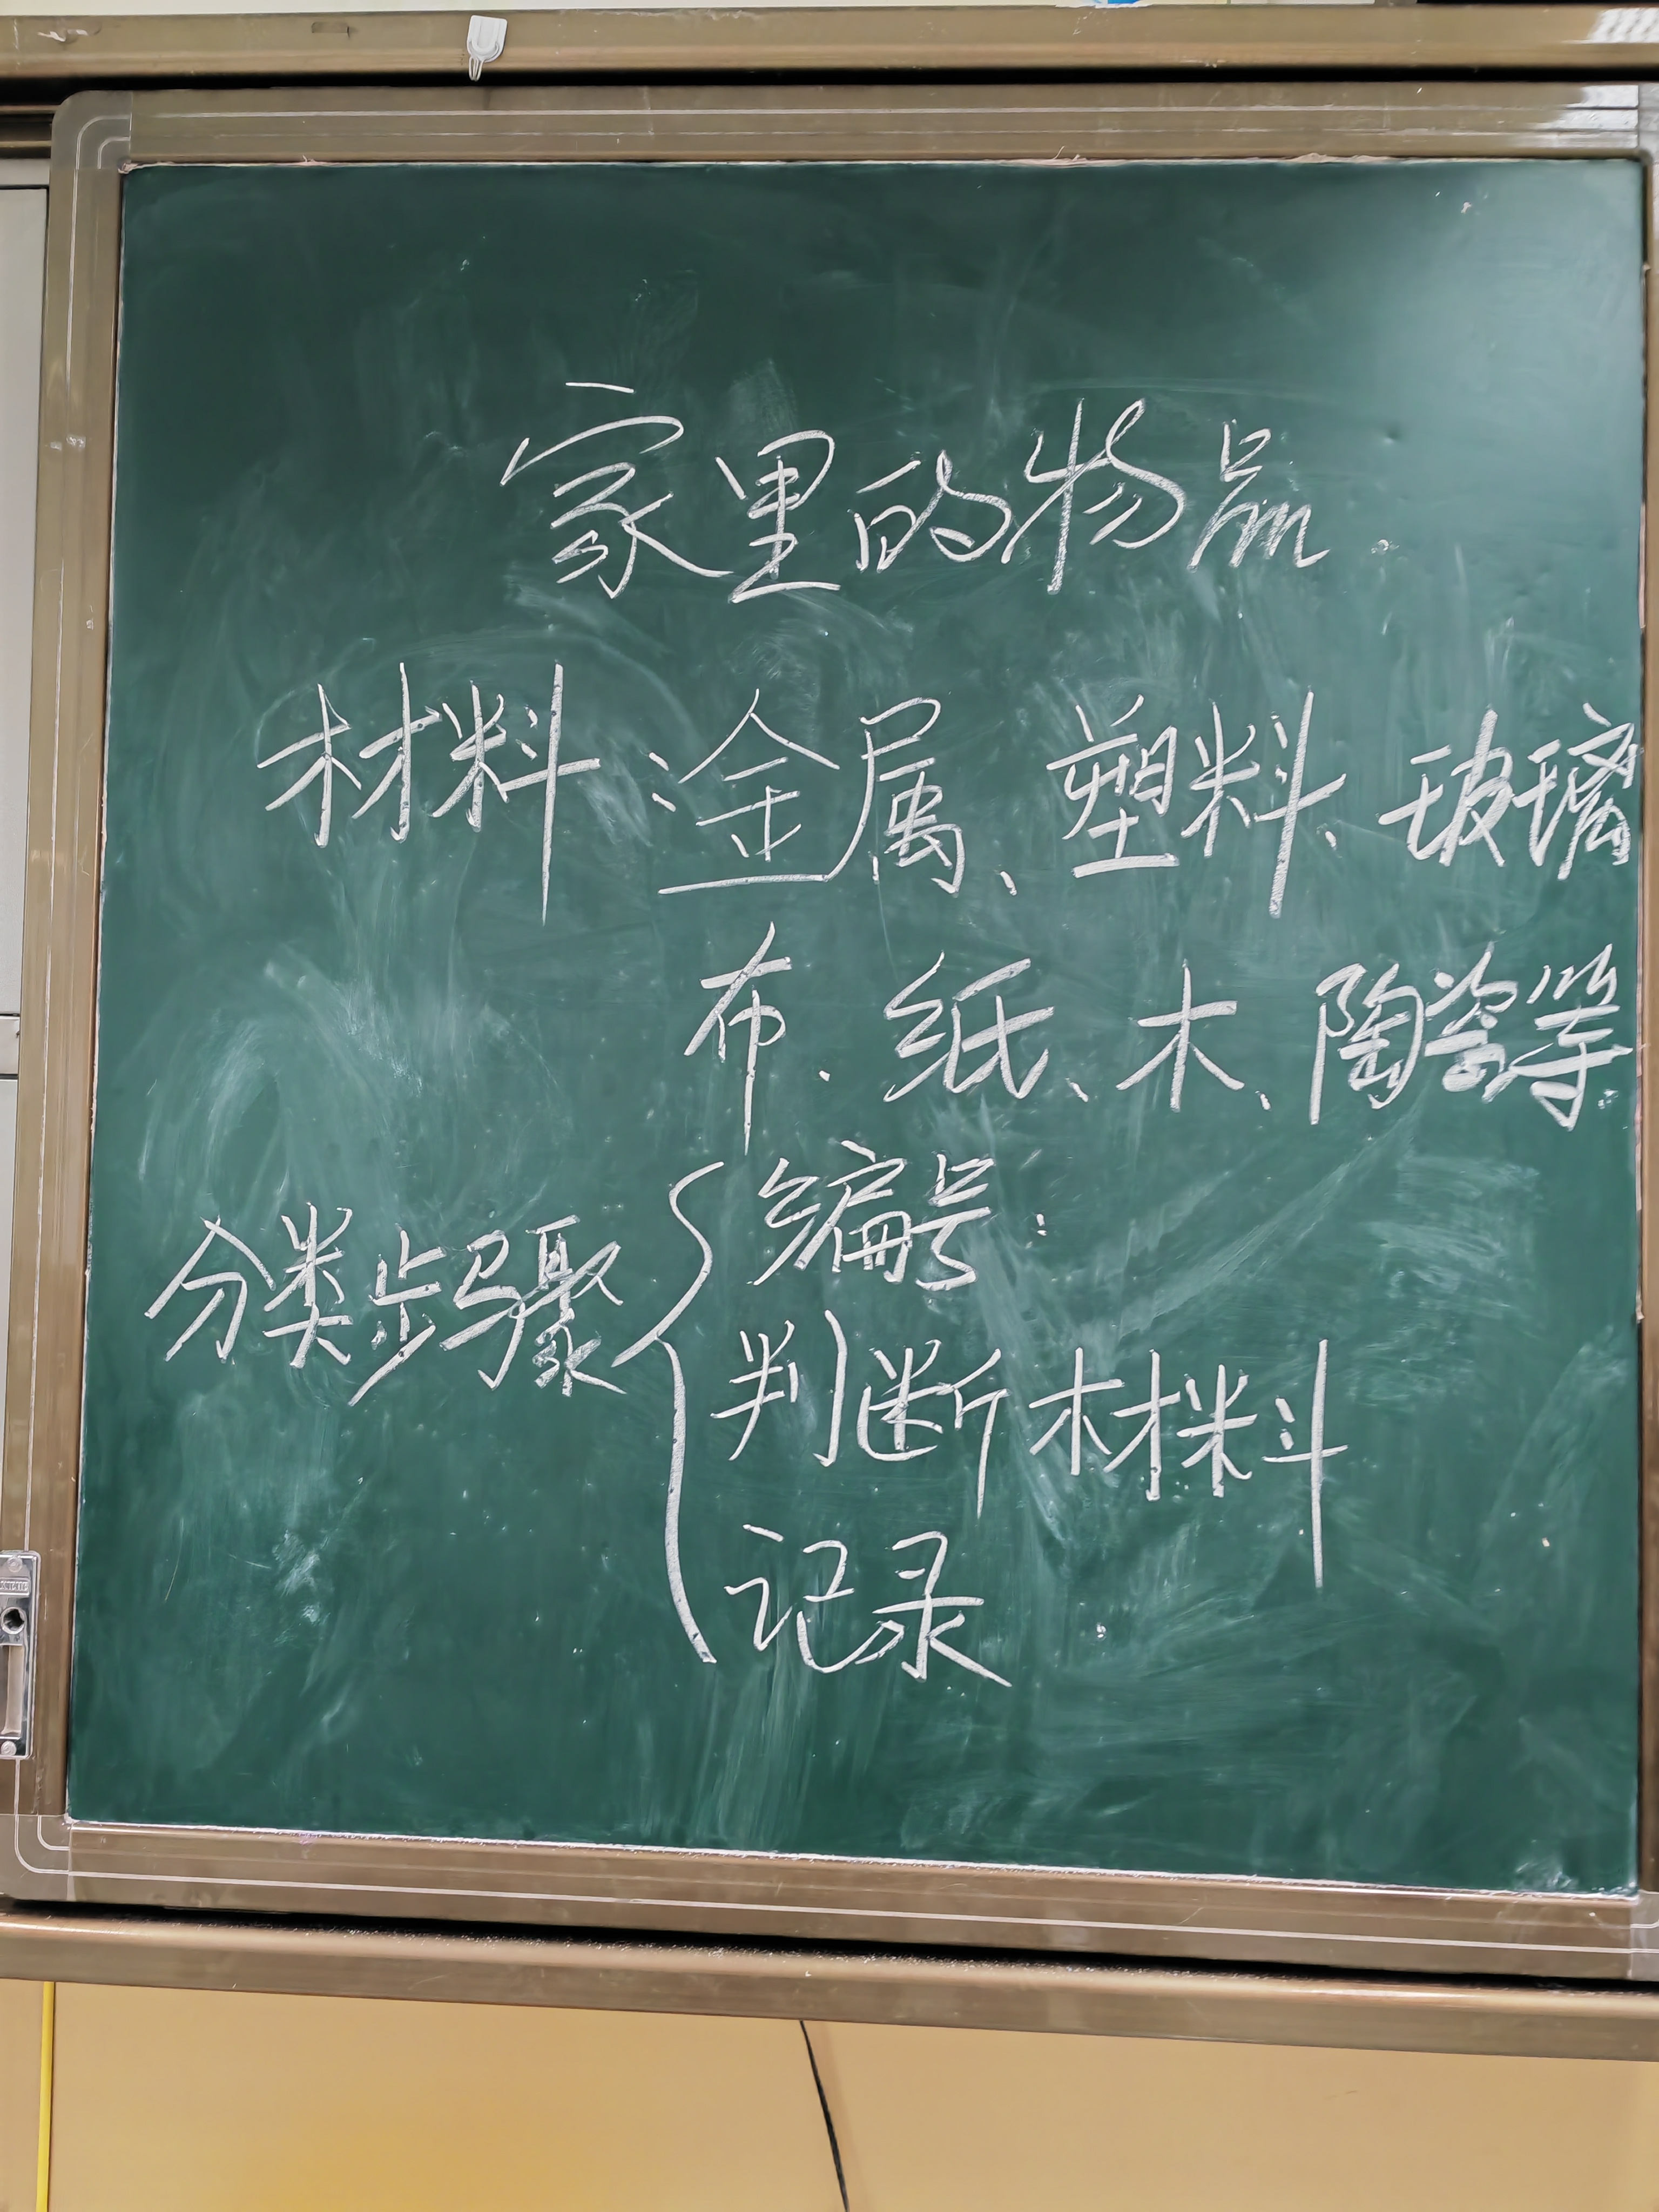 家里的物品.
材料:金属、塑料、玻璃
布、纸、木、陶瓷等.
分类步骤
编号:
判断材料
记录